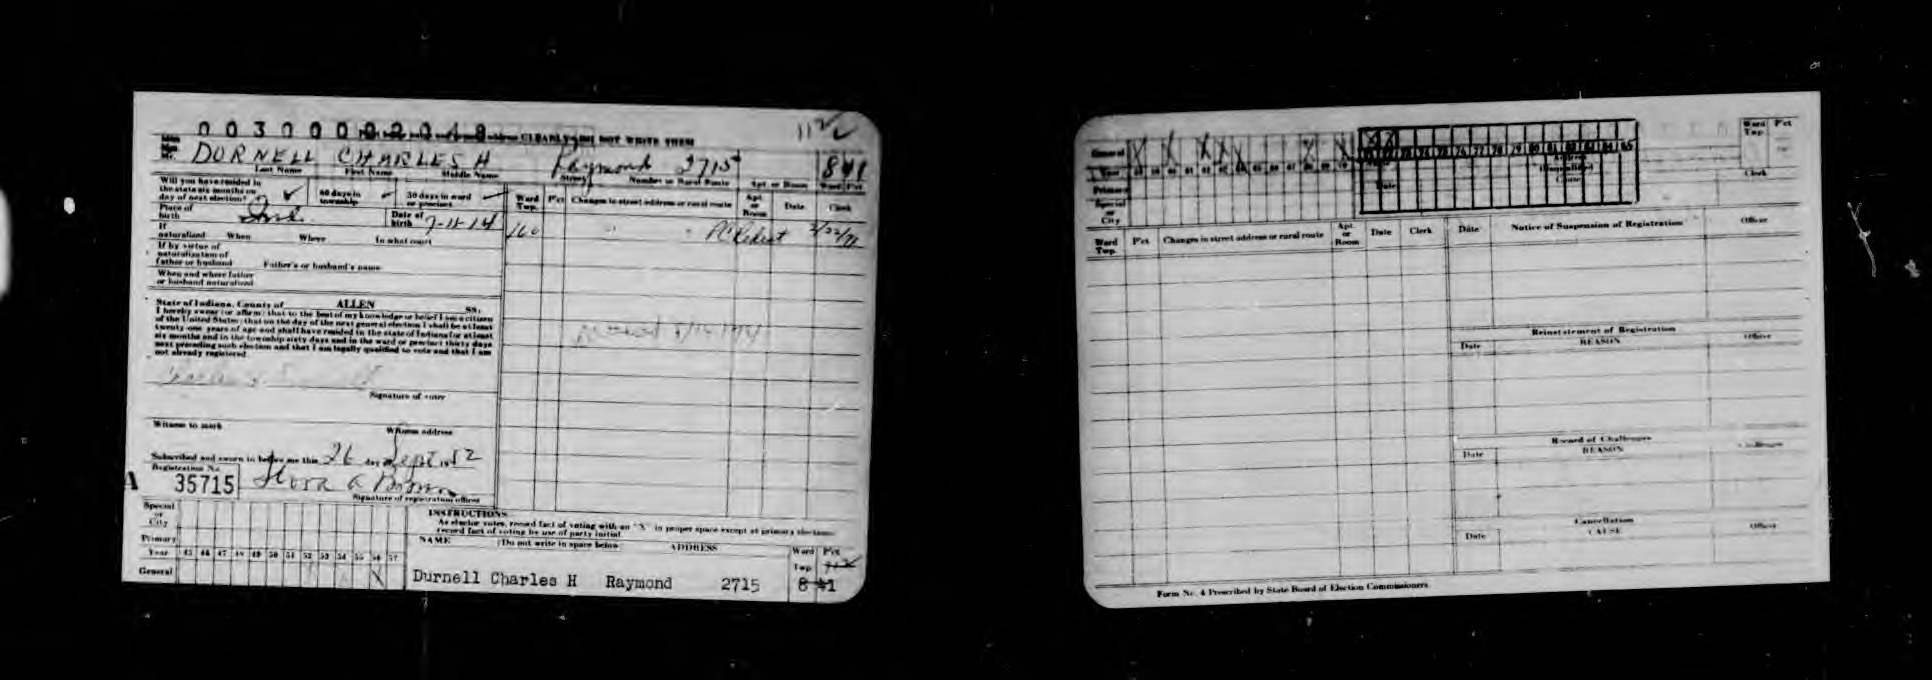 0 0 3 0 0 0 0 2 0 4 9 CLEARLY DO NOT WRITE THEM
DURNELL CHARLES H Raymond 2715 8 41
Last Name First Name Middle Name Street Number or Rural Route Apt. or Room Ward Pct
Will you have resided in the state six months on day of next election? ✓ 60 days in township 30 days in ward or precinct
Ward Twp. P'ct Changes in street address or rural route Apt. or Room Date Clerk
Place of birth Ind. Date of birth 7-11-14
160 " " Redist 2/22/71
If naturalized When Where In what court
If by virtue of naturalization of father or husband Father's or husband's name
When and where father or husband naturalized
State of Indiana, County of ALLEN SS:
I hereby swear (or affirm) that to the best of my knowledge or belief I am a citizen
of the United States; that on the day of the next general election I shall be at least
twenty-one years of age and shall have resided in the state of Indiana for at least
six months and in the township sixty days and in the ward or precinct thirty days
next preceding such election and that I am legally qualified to vote and that I am
not already registered.
Signature of voter
Witness to mark Witness address
Subscribed and sworn to before me this 26 day of Sept 1952
Registration No.
A 35715 Flora A Brown
Signature of registration officer
Special or City
Primary
Year 45 46 47 48 49 50 51 52 53 54 55 56 57
General X
INSTRUCTIONS
As elector votes, record fact of voting with an "X" in proper space except at primary elections
record fact of voting by use of party initial
NAME (Do not write in space below) ADDRESS Ward Twp. P'ct
Durnell Charles H Raymond 2715 8 41
General X X X X X X X
Year
Primary
Special or City
73 74 75 76 77 78 79 80 81 82 83 84 85
Date Cause
Ward Twp. P'ct
Clerk
Ward Twp. P'ct Changes in street address or rural route Apt. or Room Date Clerk
Date Notice of Suspension of Registration Officer
Reinstatement of Registration
Date REASON Officer
Record of Challenges
Date REASON Challenger
Cancellation
Date CAUSE Officer
Form No. 4 Prescribed by State Board of Election Commissioners